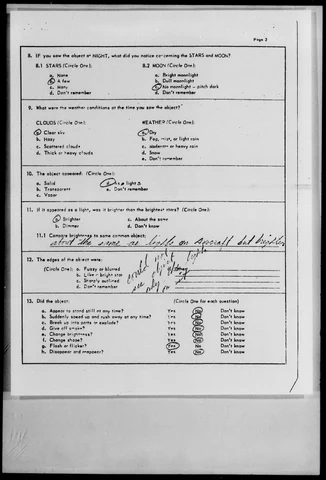 Page 2
8. IF you saw the object at NIGHT, what did you notice concerning the STARS and MOON?
8.1 STARS (Circle One): 8.2 MOON (Circle One):
a. None a. Bright moonlight
b. A few b. Dull moonlight
c. Many c. No moonlight - pitch dark
d. Don't remember d. Don't remember
9. What were the weather conditions at the time you saw the object?
CLOUDS (Circle One): WEATHER (Circle One):
a. Clear sky a. Dry
b. Hazy b. Fog, mist, or light rain
c. Scattered clouds c. moderate or heavy rain
d. Thick or heavy clouds d. Snow
e. Don't remember
10. The object appeared: (Circle One):
a. Solid d. As a light
b. Transparent e. Don't remember
c. Vapor
11. If it appeared as a light, was it brighter than the brightest stars? (Circle One):
a. Brighter c. About the same
b. Dimmer d. Don't know
11.1 Compare brightness to some common object:
about the same as lights on aircraft but brighter
12. The edges of the object were:
(Circle One): a. Fuzzy or blurred
b. Like a bright star
c. Sharply outlined
d. Don't remember
could not
see object
only light
13. Did the object: (Circle One for each question)
a. Appear to stand still at any time? Yes No Don't know
b. Suddenly speed up and rush away at any time? Yes No Don't know
c. Break up into parts or explode? Yes No Don't know
d. Give off smoke? Yes No Don't know
e. Change brightness? Yes No Don't know
f. Change shape? Yes No Don't know
g. Flash or flicker? Yes No Don't know
h. Disappear and reappear? Yes No Don't know